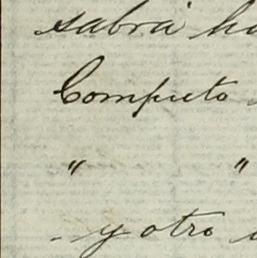 sabrá ha
Computo
" "
- y otro